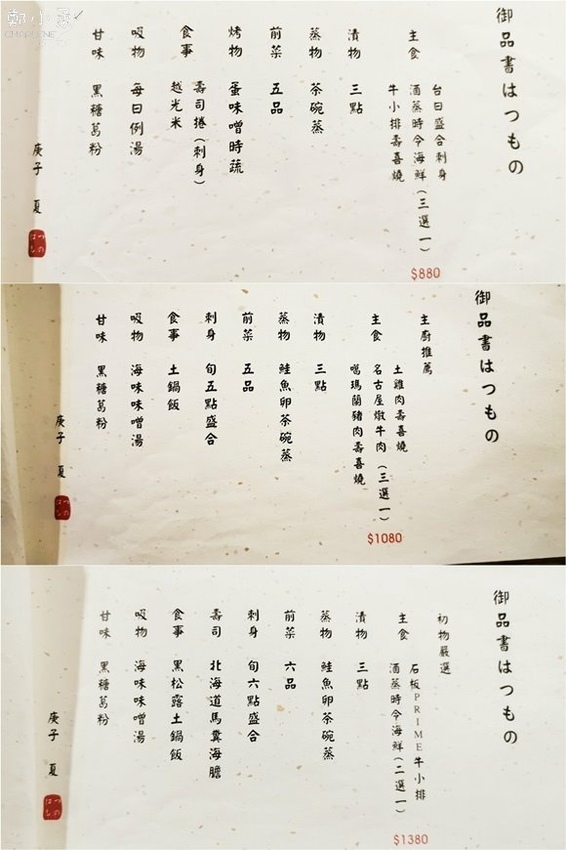 鄭小柔
御品書はつもの
主食
台日盛合刺身
酒蒸時令海鮮(三選一)
牛小排壽喜燒
漬物 三點
蒸物 茶碗蒸
前菜 五品
烤物 蛋味噌時蔬
食事 壽司捲(刺身)
越光米
吸物 每日例湯
甘味 黑糖葛粉
庚子 夏
はつもの
$880
御品書はつもの
主廚推薦
主食
土雞肉壽喜燒
名古屋燉牛肉(三選一)
噶瑪蘭豬肉壽喜燒
漬物 三點
蒸物 鮭魚卵茶碗蒸
前菜 五品
刺身 旬五點盛合
食事 土鍋飯
吸物 海味味噌湯
甘味 黑糖葛粉
庚子 夏
はつもの
$1080
御品書はつもの
初物嚴選
主食
石板PRIME牛小排
酒蒸時令海鮮(二選一)
漬物 三點
蒸物 鮭魚卵茶碗蒸
前菜 六品
刺身 旬六點盛合
壽司 北海道馬糞海膽
食事 黑松露土鍋飯
吸物 海味味噌湯
甘味 黑糖葛粉
庚子 夏
はつもの
$1380